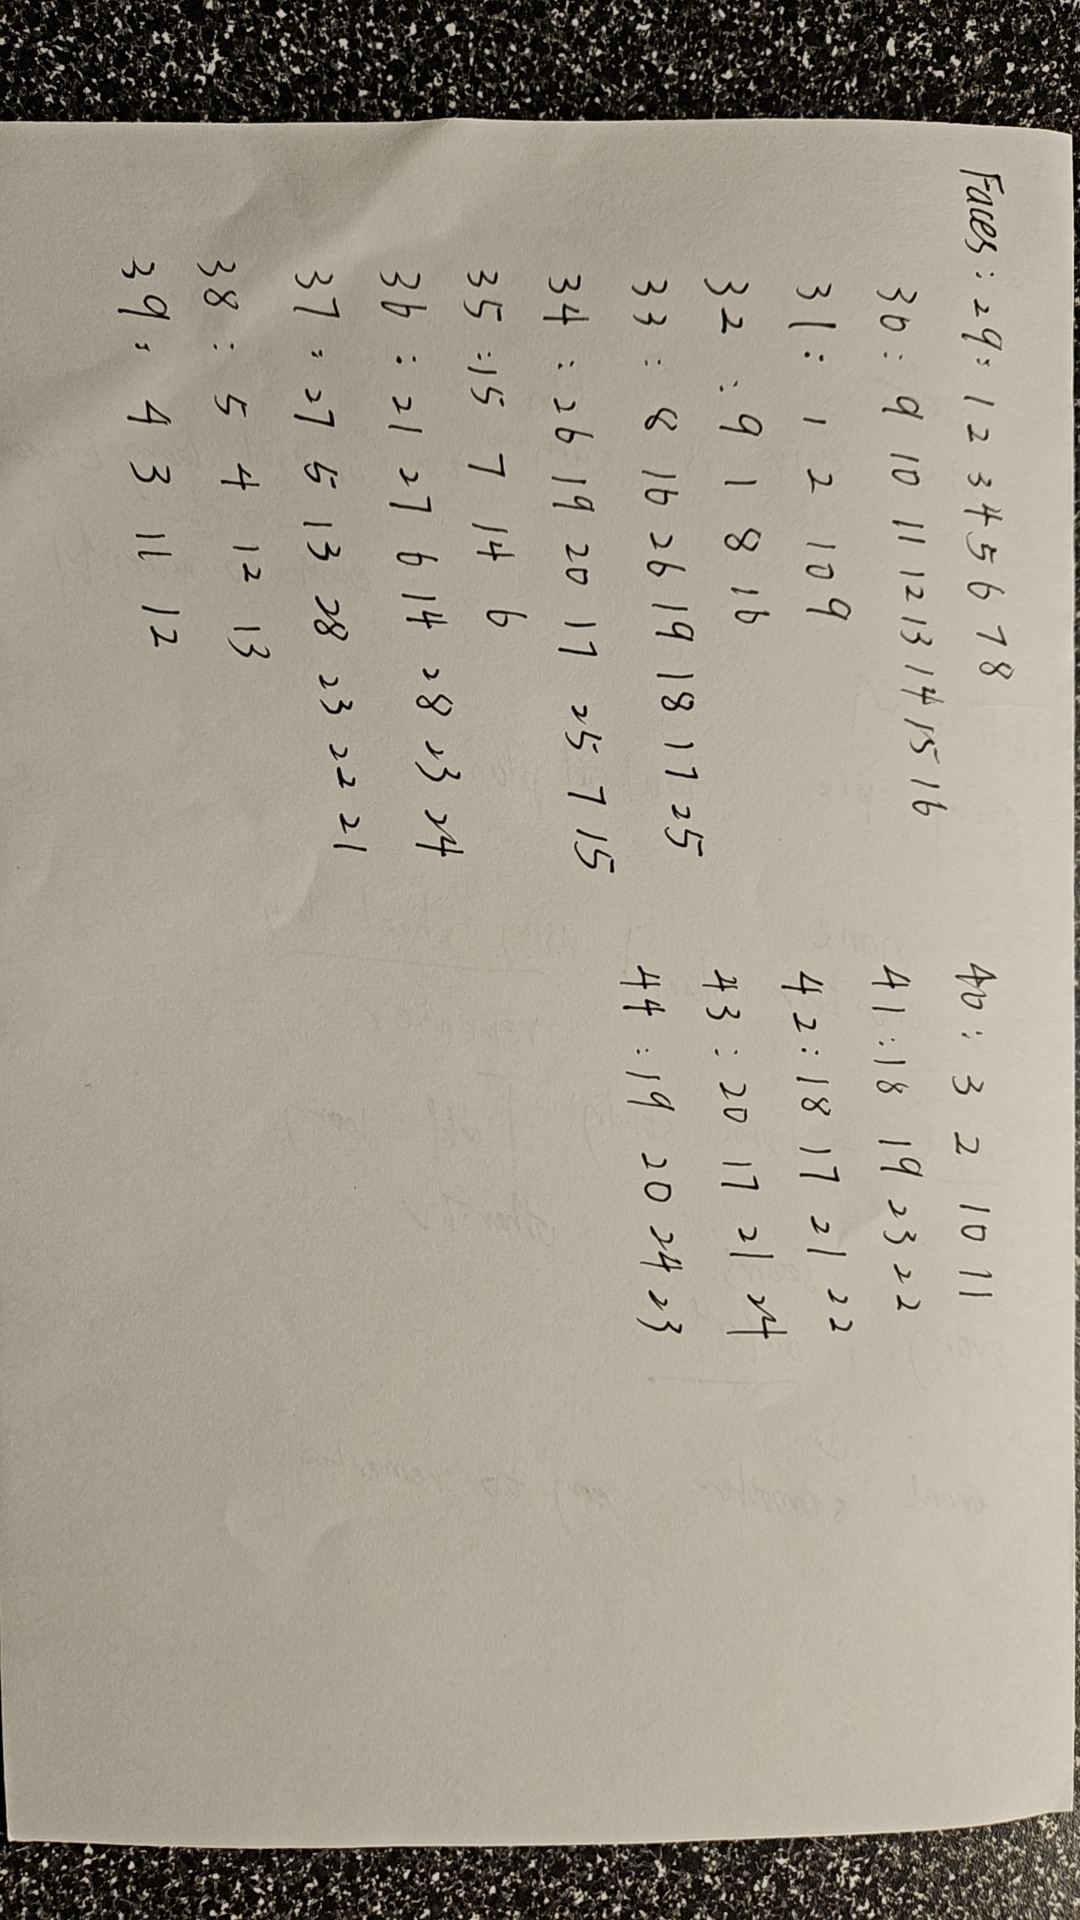 Faces: 29: 1 2 3 4 5 6 7 8
30: 9 10 11 12 13 14 15 16
31: 1 2 10 9
32: 9 1 8 16
33: 8 16 26 19 18 17 25
34: 26 19 20 17 25 7 15
35: 15 7 14 6
36: 21 27 6 14 28 23 24
37: 27 5 13 28 23 22 21
38: 5 4 12 13
39: 4 3 11 12
40: 3 2 10 11
41: 18 19 23 22
42: 18 17 21 22
43: 20 17 21 24
44: 19 20 24 23